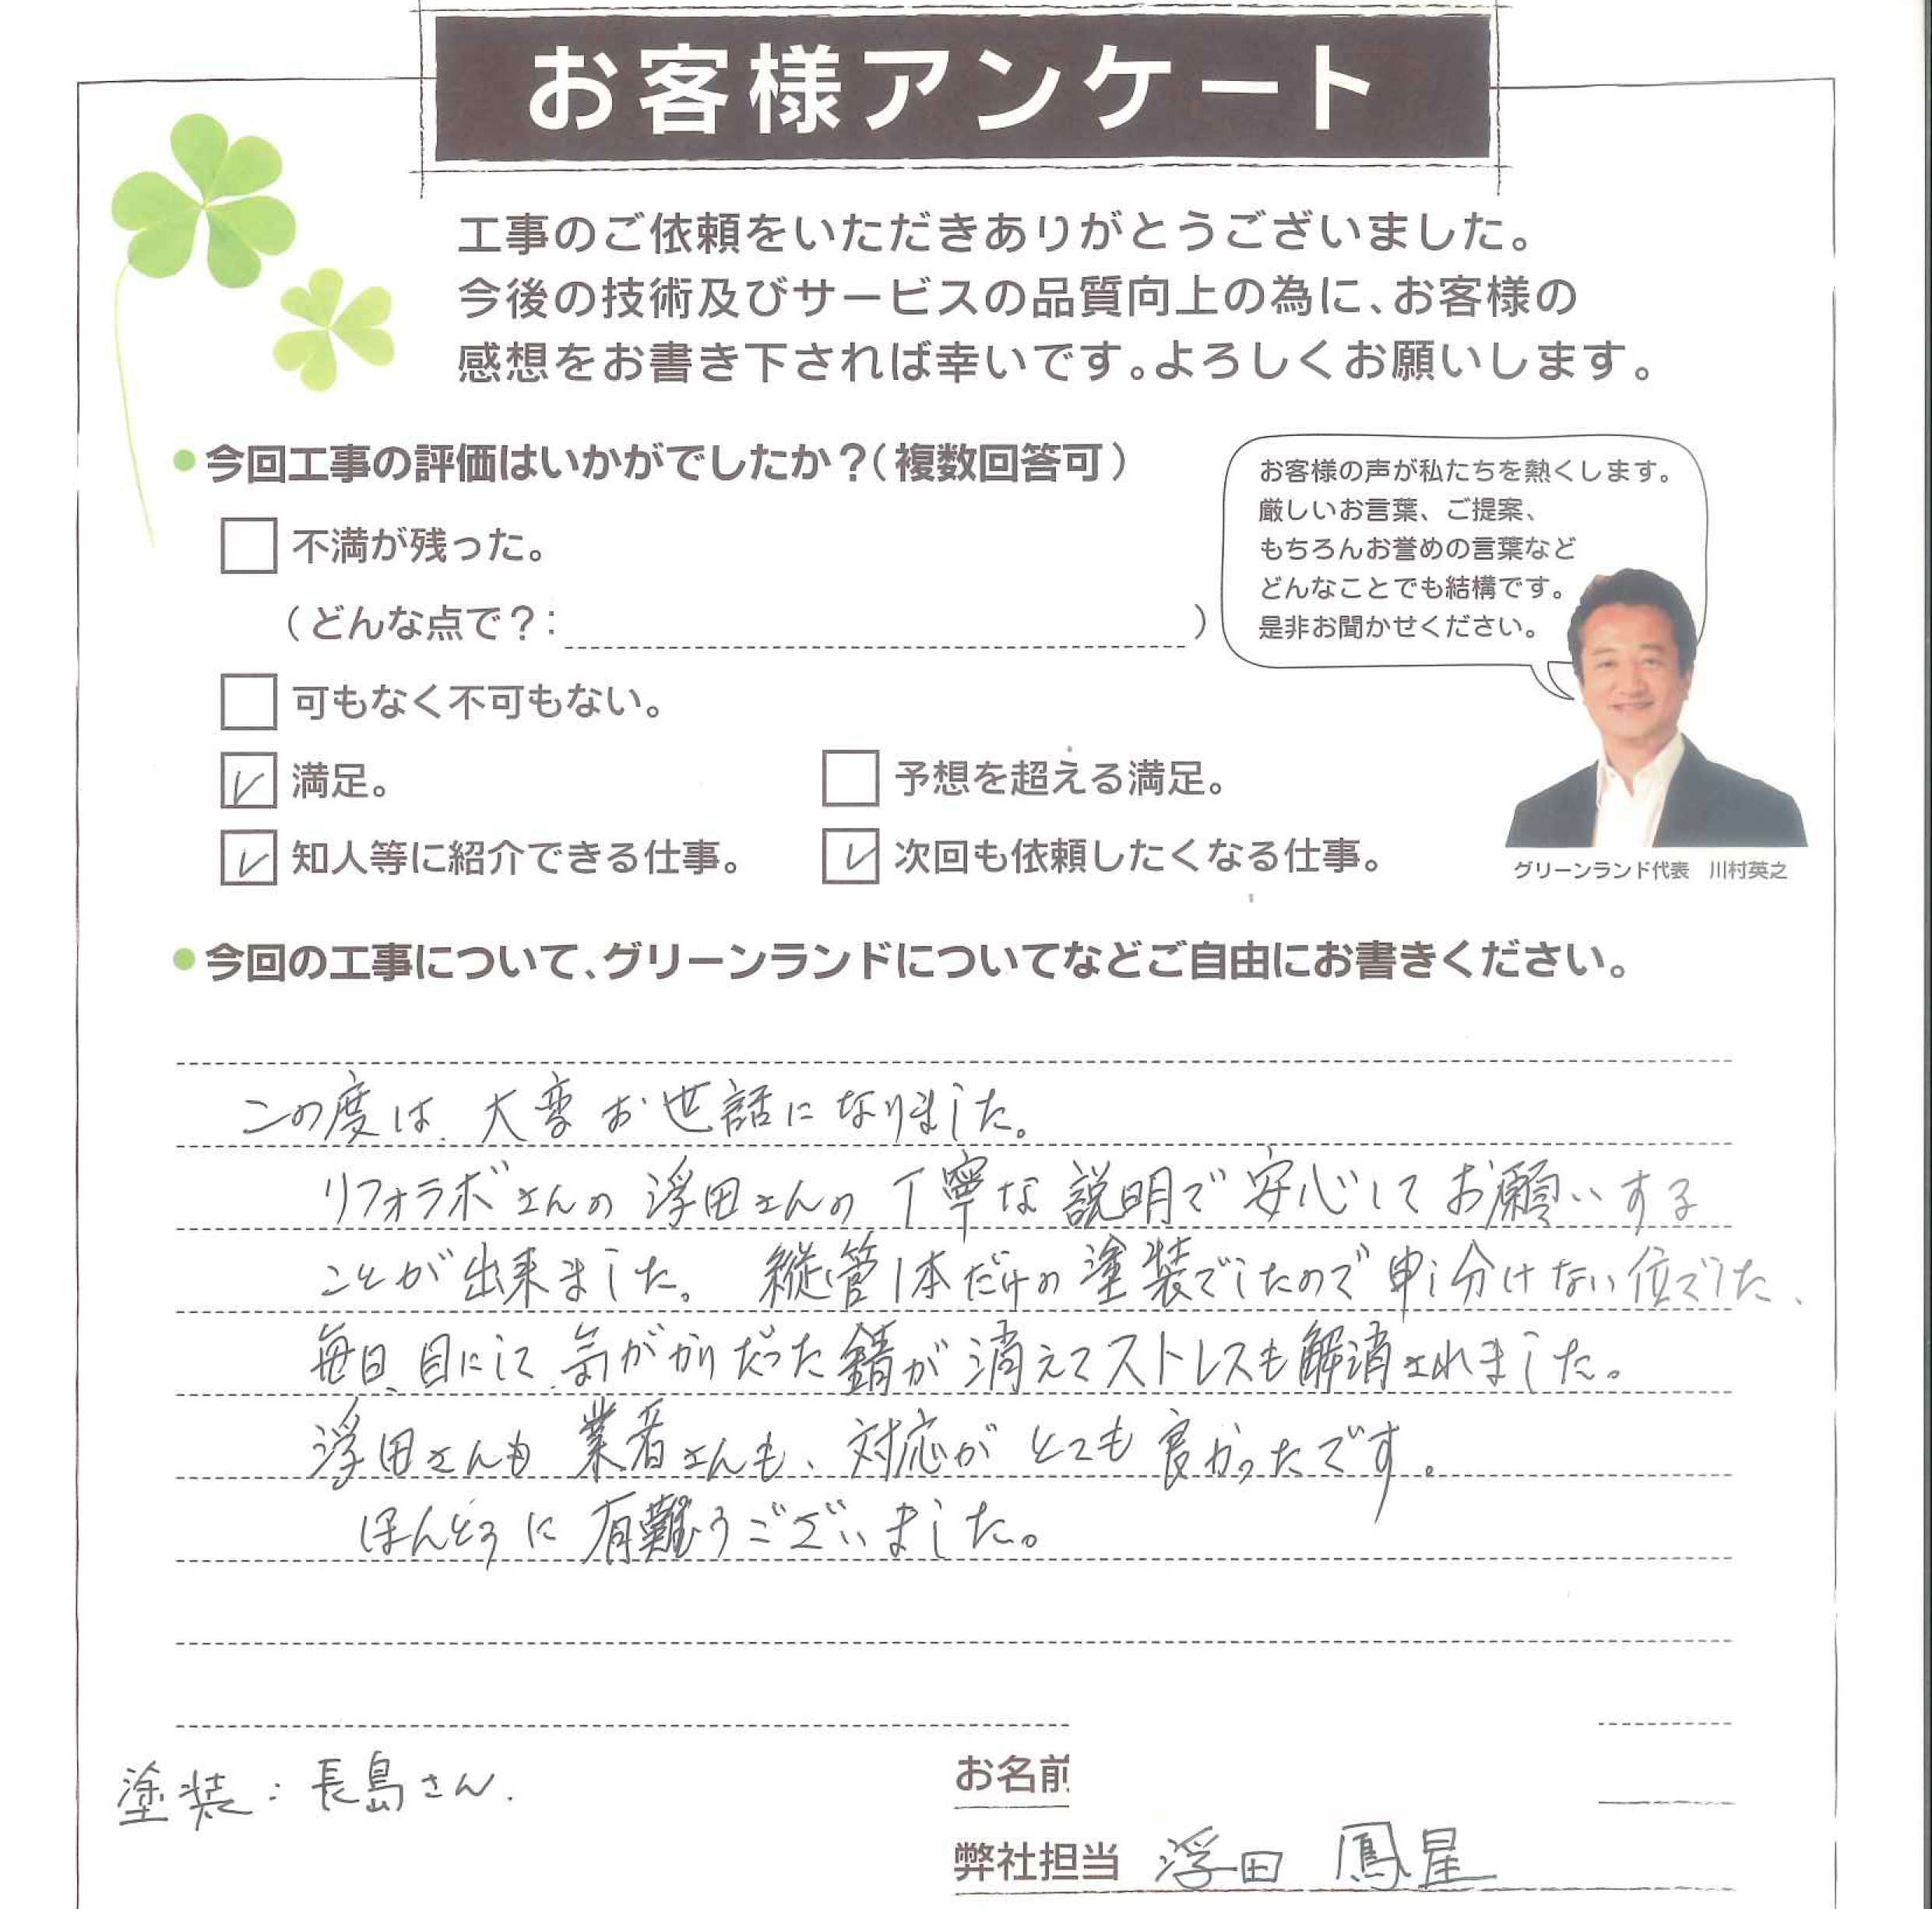 お客様アンケート
工事のご依頼をいただきありがとうございました。
今後の技術及びサービスの品質向上の為に、お客様の
感想をお書き下されば幸いです。よろしくお願いします。
今回工事の評価はいかがでしたか？（複数回答可）
不満が残った。
（どんな点で？：　）
可もなく不可もない。
満足。
予想を超える満足。
知人等に紹介できる仕事。
次回も依頼したくなる仕事。
お客様の声が私たちを熱くします。
厳しいお言葉、ご提案、
もちろんお誉めの言葉など
どんなことでも結構です。
是非お聞かせください。
グリーンランド代表　川村英之
今回の工事について、グリーンランドについてなどご自由にお書きください。
この度は、大変お世話になりました。
リフォラボさんの浮田さんの丁寧な説明で安心してお願いする
ことが出来ました。縦管1本だけの塗装でしたので申し分けない位でした、
毎日、目にして、気がかりだった錆が消えてストレスも解消されました。
浮田さんも業者さんも、対応がとても良かったです。
ほんとうに有難うございました。
塗装：長島さん．
お名前
弊社担当　浮田　鳳星